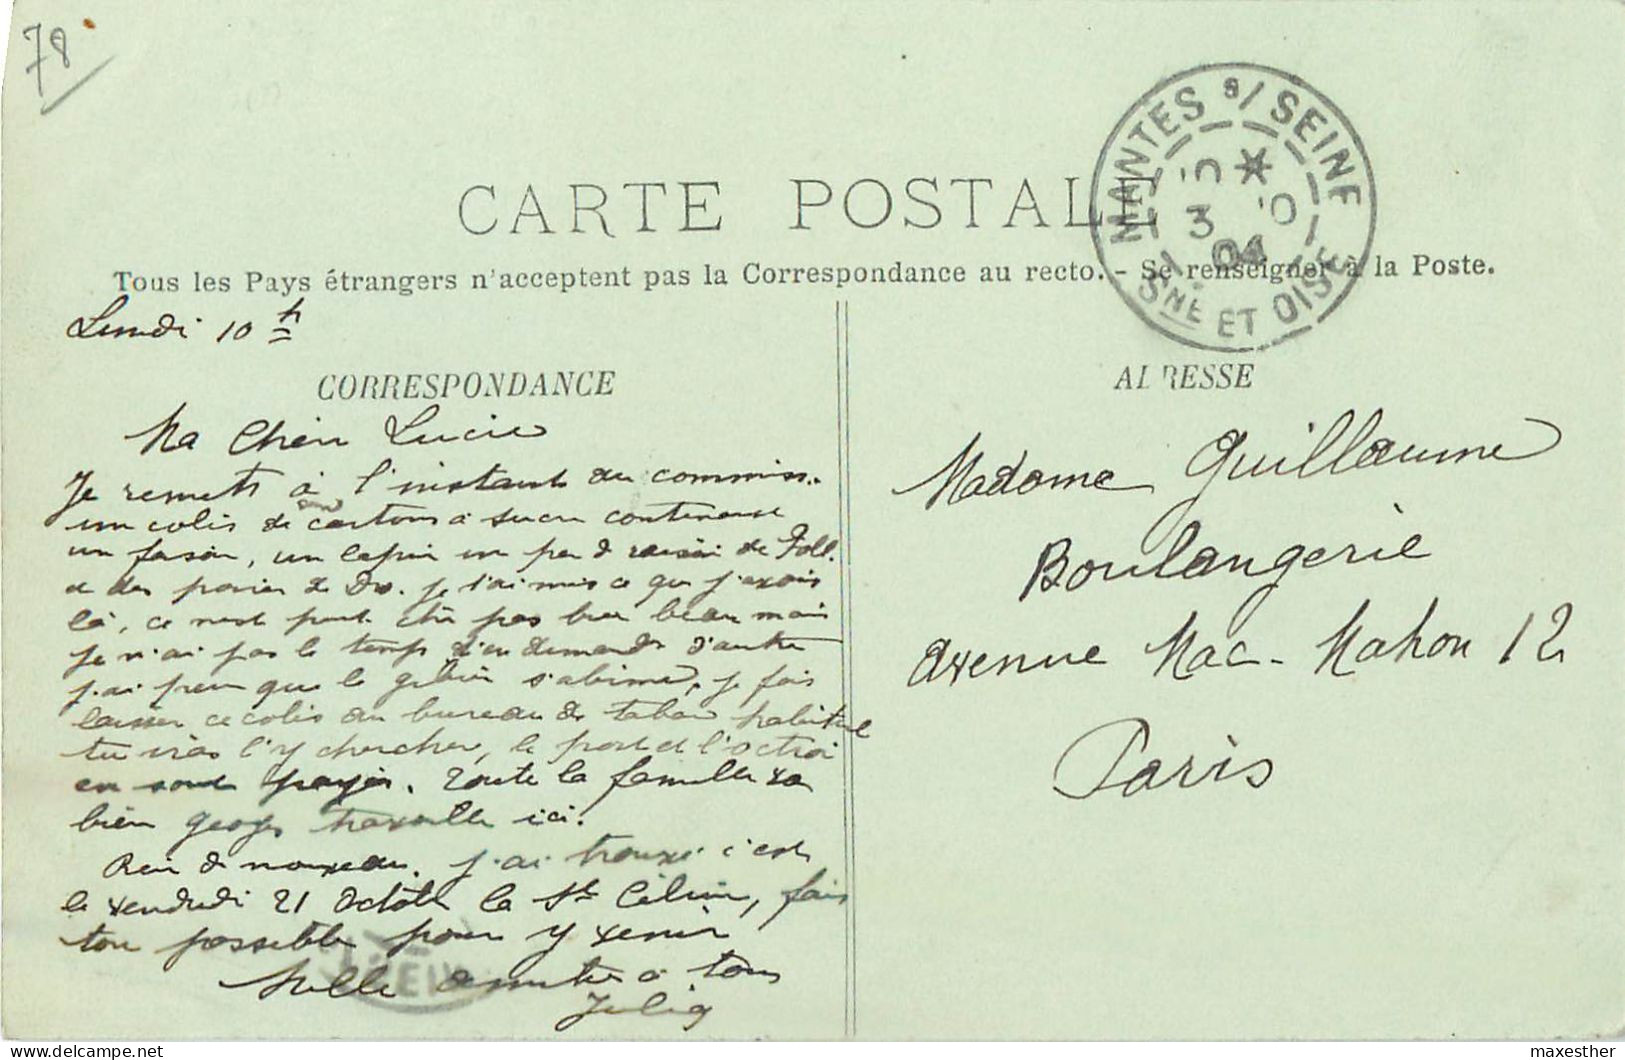 78
CARTE POSTALE
Tous les Pays étrangers n'acceptent pas la Correspondance au recto. - Se renseigner à la Poste.
MANTES s/ SEINE
3 04
Sne ET OISE
Lundi 10 h
CORRESPONDANCE
Ma Chère Lucie
Je remets à l'instant au commiss.
un colis de cartons à sucre contenant
un faisan, un lapin un peu de raisin de Foll.
et des poires de Dro. je t'ai mis ce que j'avais
là, ce n'est peut être pas bien beau mais
je n'ai pas le temps d'en demander d'autre
j'ai peur que le gibier s'abime, je fais
laisser ce colis au bureau de tabac habituel
tu iras l'y chercher, le port et l'octroi
en sont payés. Toute la famille va
bien Georges travaille ici.
Rien de nouveau. j'ai trouvé c'est
le vendredi 21 octobre la St Célinie, fais
ton possible pour y venir
Mille amitiés à tous
Julia
ADRESSE
Madame Guillaume
Boulangerie
Avenue Mac-Mahon 12
Paris
maxesther